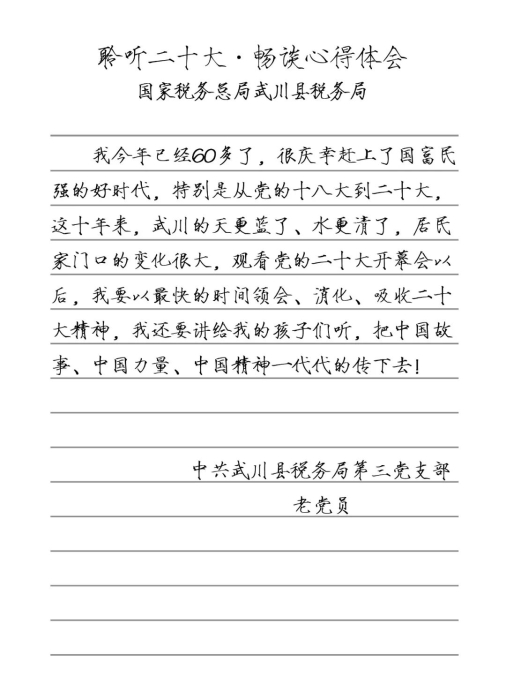 聆听二十大·畅谈心得体会
国家税务总局武川县税务局
我今年已经60多了，很庆幸赶上了国富民
强的好时代，特别是从党的十八大到二十大，
这十年来，武川的天更蓝了、水更清了，居民
家门口的变化很大，观看党的二十大开幕会以
后，我要以最快的时间领会、消化、吸收二十
大精神，我还要讲给我的孩子们听，把中国故
事、中国力量、中国精神一代代的传下去！
中共武川县税务局第三党支部
老党员